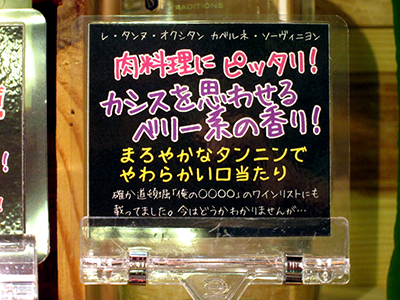 TRADITIONS
レ・タンヌ・オクシタン カベルネ・ソーヴィニヨン
肉料理に ピッタリ!
カシスを思わせる
ベリー系の香り!
まろやかなタンニンで
やわらかい口当たり
確か道頓堀「俺の○○○○」のワインリストにも
載ってました。今はどうかわかりませんが…